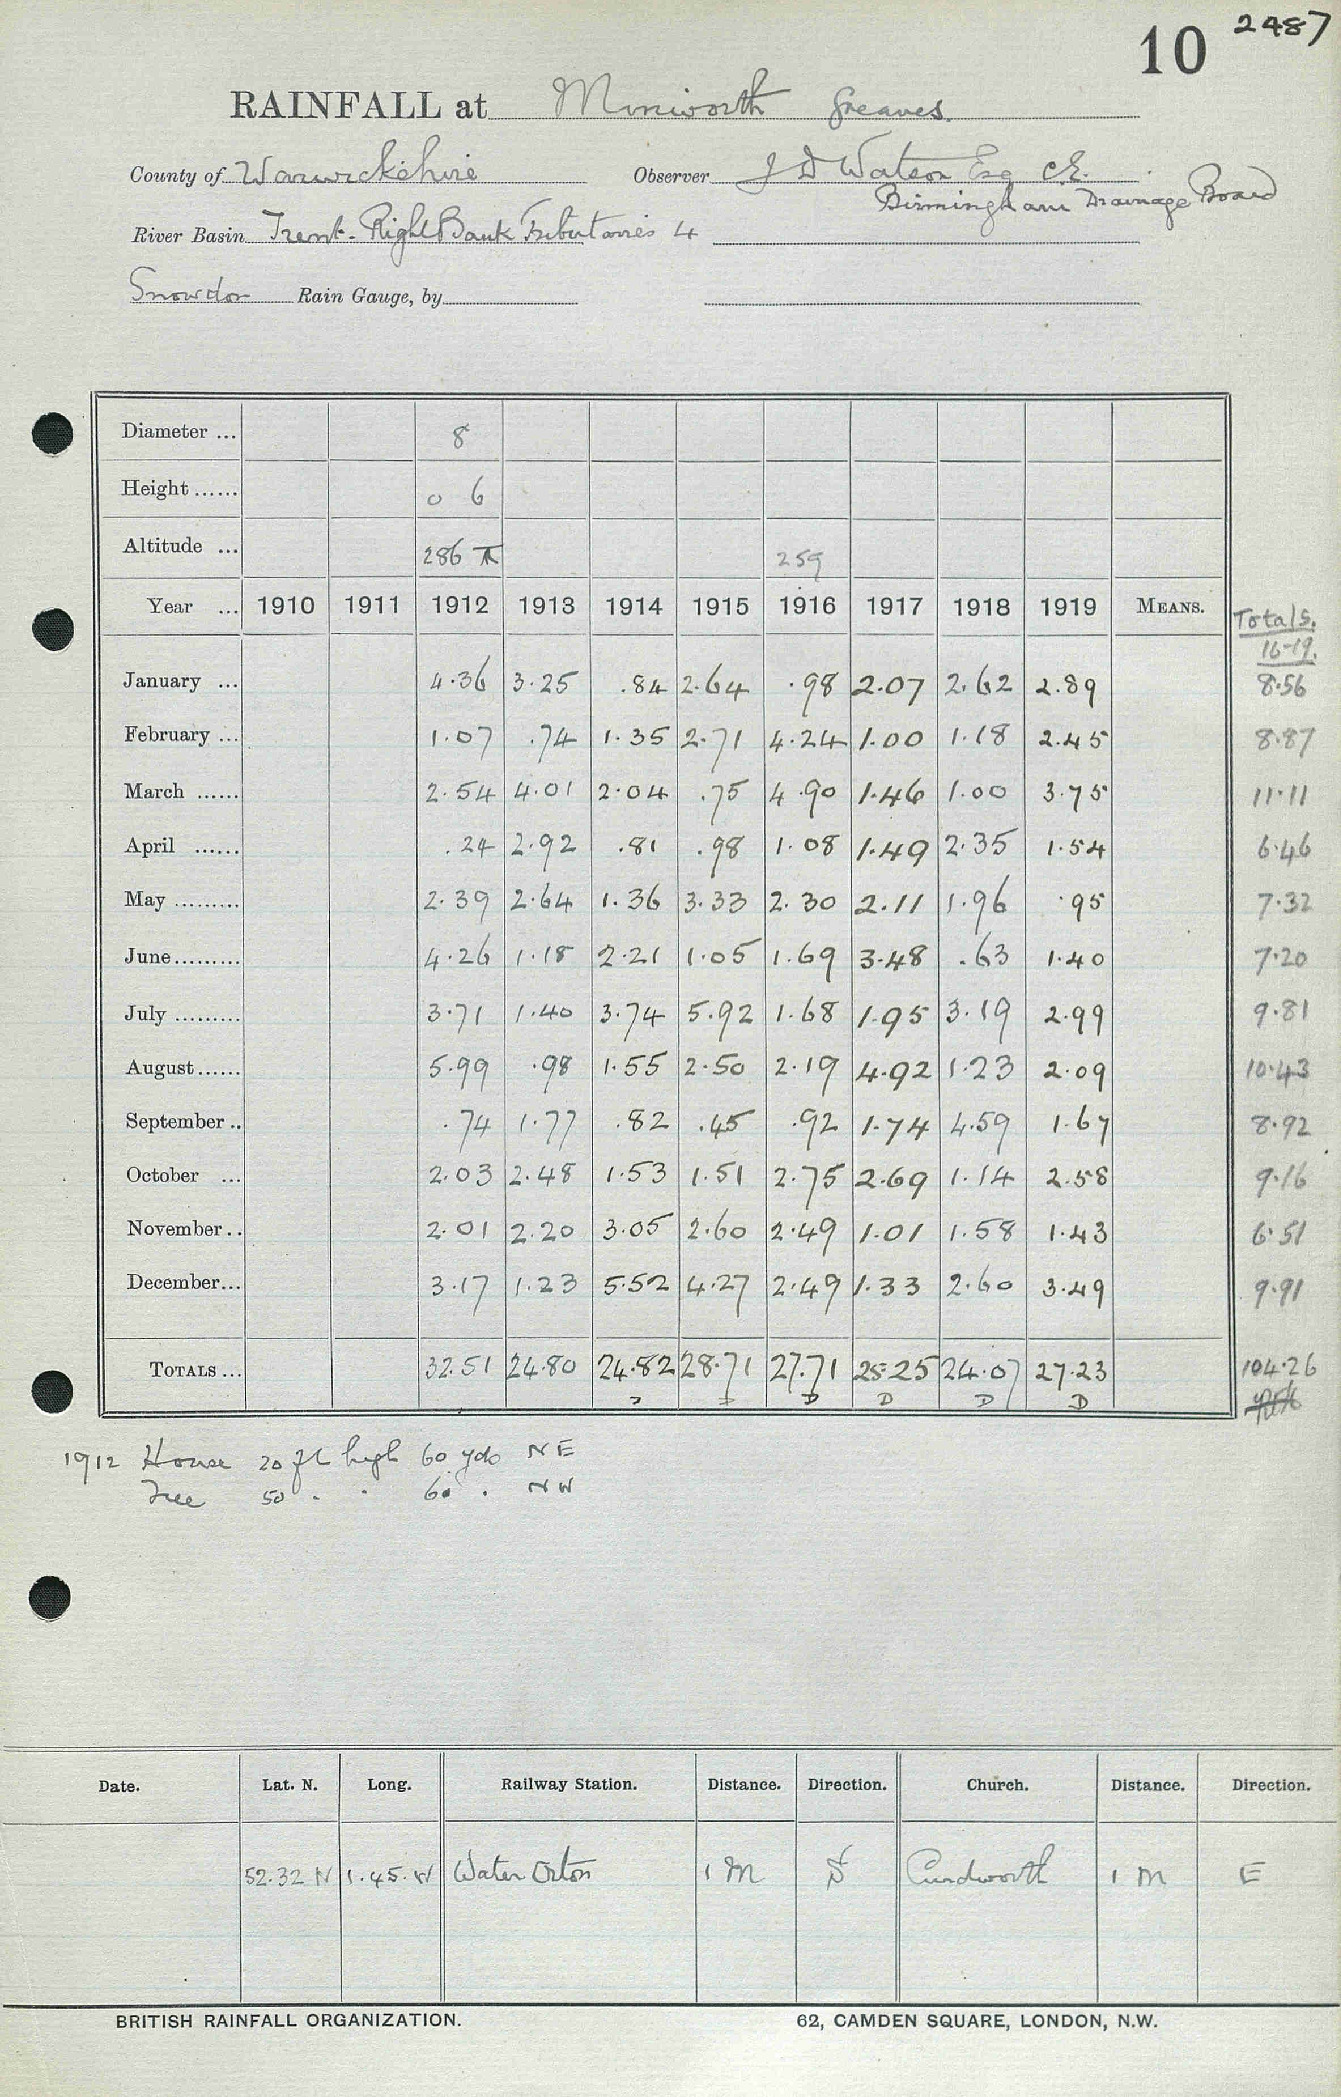 10 2487
RAINFALL at Minworth Greaves.
County of Warwickshire Observer J D Watson Esq C.E.
Birmingham Drainage Board
River Basin Trent - Right Bank Tributaries 4
Snowdon Rain Gauge, by
Diameter ... 8
Height ...... 0 6
Altitude ... 286 259
Year ... 1910 1911 1912 1913 1914 1915 1916 1917 1918 1919 MEANS. Totals.
16-19.
January ... 4.36 3.25 .84 2.64 .98 2.07 2.62 2.89 8.56
February ... 1.07 .74 1.35 2.71 4.24 1.00 1.18 2.45 8.87
March ...... 2.54 4.01 2.04 .75 4.90 1.46 1.00 3.75 11.11
April ...... .24 2.92 .81 .98 1.08 1.49 2.35 1.54 6.46
May ......... 2.39 2.64 1.36 3.33 2.30 2.11 1.96 .95 7.32
June......... 4.26 1.18 2.21 1.05 1.69 3.48 .63 1.40 7.20
July ......... 3.71 1.40 3.74 5.92 1.68 1.95 3.19 2.99 9.81
August...... 5.99 .98 1.55 2.50 2.19 4.92 1.23 2.09 10.43
September .. .74 1.77 .82 .45 .92 1.74 4.59 1.67 8.92
October ... 2.03 2.48 1.53 1.51 2.75 2.69 1.14 2.58 9.16
November.. 2.01 2.20 3.05 2.60 2.49 1.01 1.58 1.43 6.51
December... 3.17 1.23 5.52 4.27 2.49 1.33 2.60 3.49 9.91
TOTALS ... 32.51 24.80 24.82 28.71 27.71 25.25 24.07 27.23 104.26
D D D D
1912 House 20 ft high 60 yds NE
Tree 50 . . 60 . NW
Date. Lat. N. Long. Railway Station. Distance. Direction. Church. Distance. Direction.
52.32 N 1.45.W Water Orton 1 M S Curdworth 1 M E
BRITISH RAINFALL ORGANIZATION. 62, CAMDEN SQUARE, LONDON, N.W.